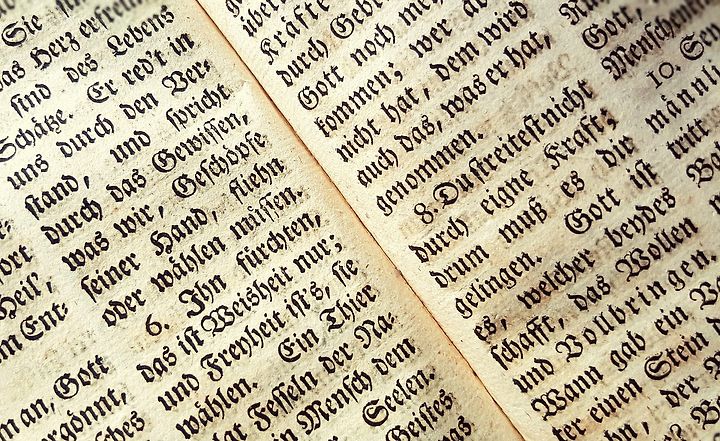 Heil,
Ent-
Gott
Sie
Herz
ſind des Lebens
Schätze. Er red't in
uns durch den Ver-
ſtand, und ſpricht
durch das Gewiſſen,
was wir, Geſchöpfe
ſeiner Hand, fliehn
oder wählen müſſen.
6. Ihn fürchten,
das iſt Weisheit nur;
und Freyheit iſt's, ſie
wählen. Ein Thier
Feſſeln der Na-
Menſch dem
Seelen
Geiſtes
Kräfte
durch
Gott noch
kommen; wer
nicht hat, dem wird
auch das, was er hat,
genommen.
8. Du ſtreiteſt nicht
durch eigne Kraft;
drum muß es die
gelingen. Gott iſt
es, welcher beydes
ſchafft, das Wollen
und Vollbringen.
Wann gab ein
einen Stein
der
Gott,
10.
männli
tritt